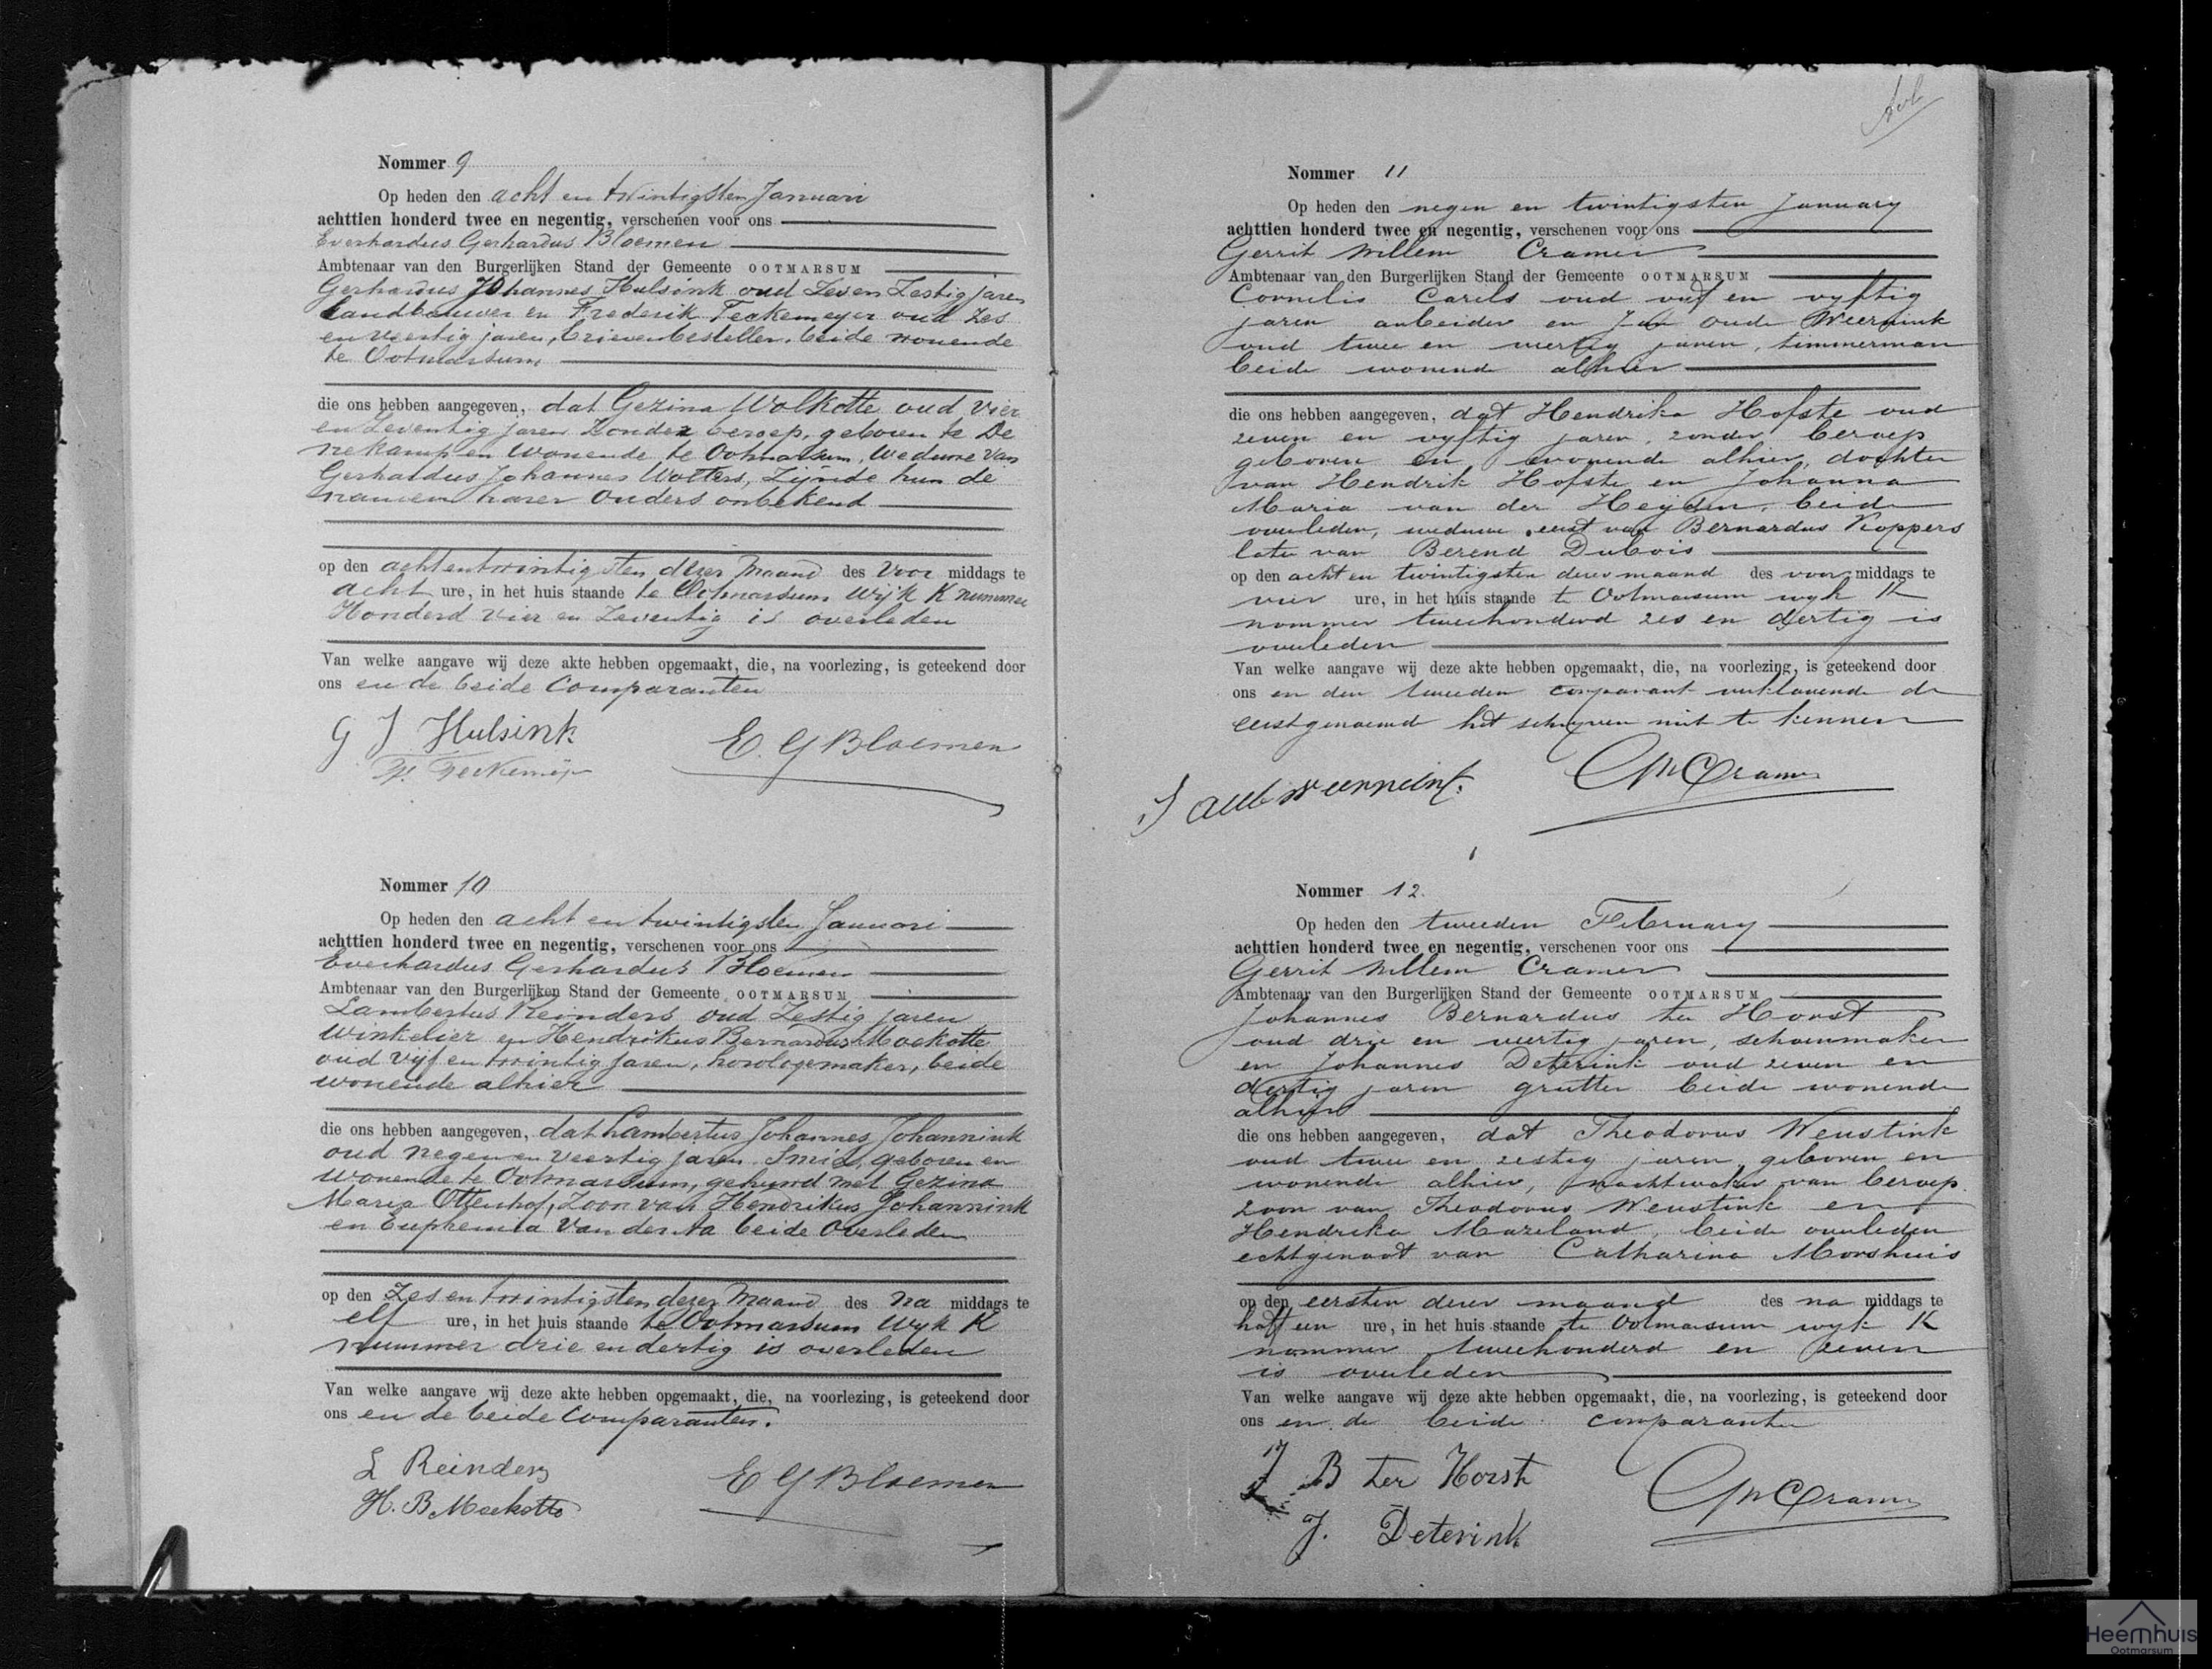 Nommer 9
Op heden den acht en twintigsten Januari
achttien honderd twee en negentig, verschenen voor ons
Everhardus Gerhardus Bloemen
Ambtenaar van den Burgerlijken Stand der Gemeente OOTMARSUM
Gerhardus Johannes Hulsink oud Zeven Zestig jaren
Landbouwer en Frederik Teckemeyer oud Zes
en veertig jaren, brievenbesteller, beide wonende
te Ootmarsum
die ons hebben aangegeven, dat Gezina Wolkotte oud Vier
en Zeventig jaren Zonder beroep, geboren te De
nekamp en Wonende te Ootmarsum, Weduwe Van
Gerhardus Johannes Wolters, Zijnde hun de
namen harer Ouders onbekend
op den achtentwintigsten dezer Maand des Voor middags te
acht ure, in het huis staande te Ootmarsum Wijk K nummer
Honderd Vier en Zeventig is overleden
Van welke aangave wij deze akte hebben opgemaakt, die, na voorlezing, is geteekend door
ons en de beide Comparanten
G J Hulsink
E. G Bloemen
Nommer 10
Op heden den acht en twintigsten Januari
achttien honderd twee en negentig, verschenen voor ons
Everhardus Gerhardus Bloemen
Ambtenaar van den Burgerlijken Stand der Gemeente OOTMARSUM
Lambertus Reinders oud Zestig jaren
Winkelier en Hendrikus Bernardus Moekotte
oud Vijf en twintig jaren, horologemaker, beide
wonende alhier
die ons hebben aangegeven, dat Lambertus Johannes Johannink
oud negen en Veertig jaren Smid, geboren en
wonende te Ootmarsum, gehuwd met Gezina
Maria Ottenhof, Zoon van Hendrikus Johannink
en Euphemia Van der Aa beide Overleden
op den Zes en twintigsten dezer Maand des na middags te
elf ure, in het huis staande te Ootmarsum Wyk K
nummer drie en dertig is overleden
Van welke aangave wij deze akte hebben opgemaakt, die, na voorlezing, is geteekend door
ons en de beide Comparanten.
L Reinders
E G Bloemen
H. B Moekotte
Nommer 11
Op heden den negen en twintigsten January
achttien honderd twee en negentig, verschenen voor ons
Gerrit Willem Cramer
Ambtenaar van den Burgerlijken Stand der Gemeente OOTMARSUM
Cornelis Carels oud vijf en vyftig
jaren arbeider en Jan oude Weernink
oud twee en veertig jaren, timmerman
beide wonende alhier
die ons hebben aangegeven, dat Hendrika Hofste oud
zeven en vyftig jaren, zonder beroep
geboren en wonende alhier, dochter
van Hendrik Hofste en Johanna
Maria van der Heyden, beide
overleden, weduwe eerst van Bernardus Koppers
later van Berend Dubois
op den acht en twintigsten dezer maand des voor middags te
vier ure, in het huis staande te Ootmarsum wyk K
nommer tweehonderd zes en dertig is
overleden
Van welke aangave wij deze akte hebben opgemaakt, die, na voorlezing, is geteekend door
ons en den tweeden comparant verklarende de
eerstgenoemd het schryven niet te kennen
GWCramer
Nommer 12.
Op heden den tweeden February
achttien honderd twee en negentig, verschenen voor ons
Gerrit Willem Cramer
Ambtenaar van den Burgerlijken Stand der Gemeente OOTMARSUM
Johannes Bernardus ter Horst
oud drie en veertig jaren, schoenmaker
en Johannes Deterink oud zeven en
dertig jaren grutter beide wonende
alhier
die ons hebben aangegeven, dat Theodorus Weustink
oud twee en zestig jaren, geboren en
wonende alhier, nachtwaker van beroep
zoon van Theodorus Weustink en
Hendrika Mazeland, beide overleden
echtgenoot van Catharina Morshuis
op den eersten dezer maand des na middags te
half een ure, in het huis staande te Ootmarsum wyk K
nommer tweehonderd en zeven
is overleden
Van welke aangave wij deze akte hebben opgemaakt, die, na voorlezing, is geteekend door
ons en de beide comparanten
J B ter Horst
GWCramer
J. Deterink
Heemhuis
Ootmarsum